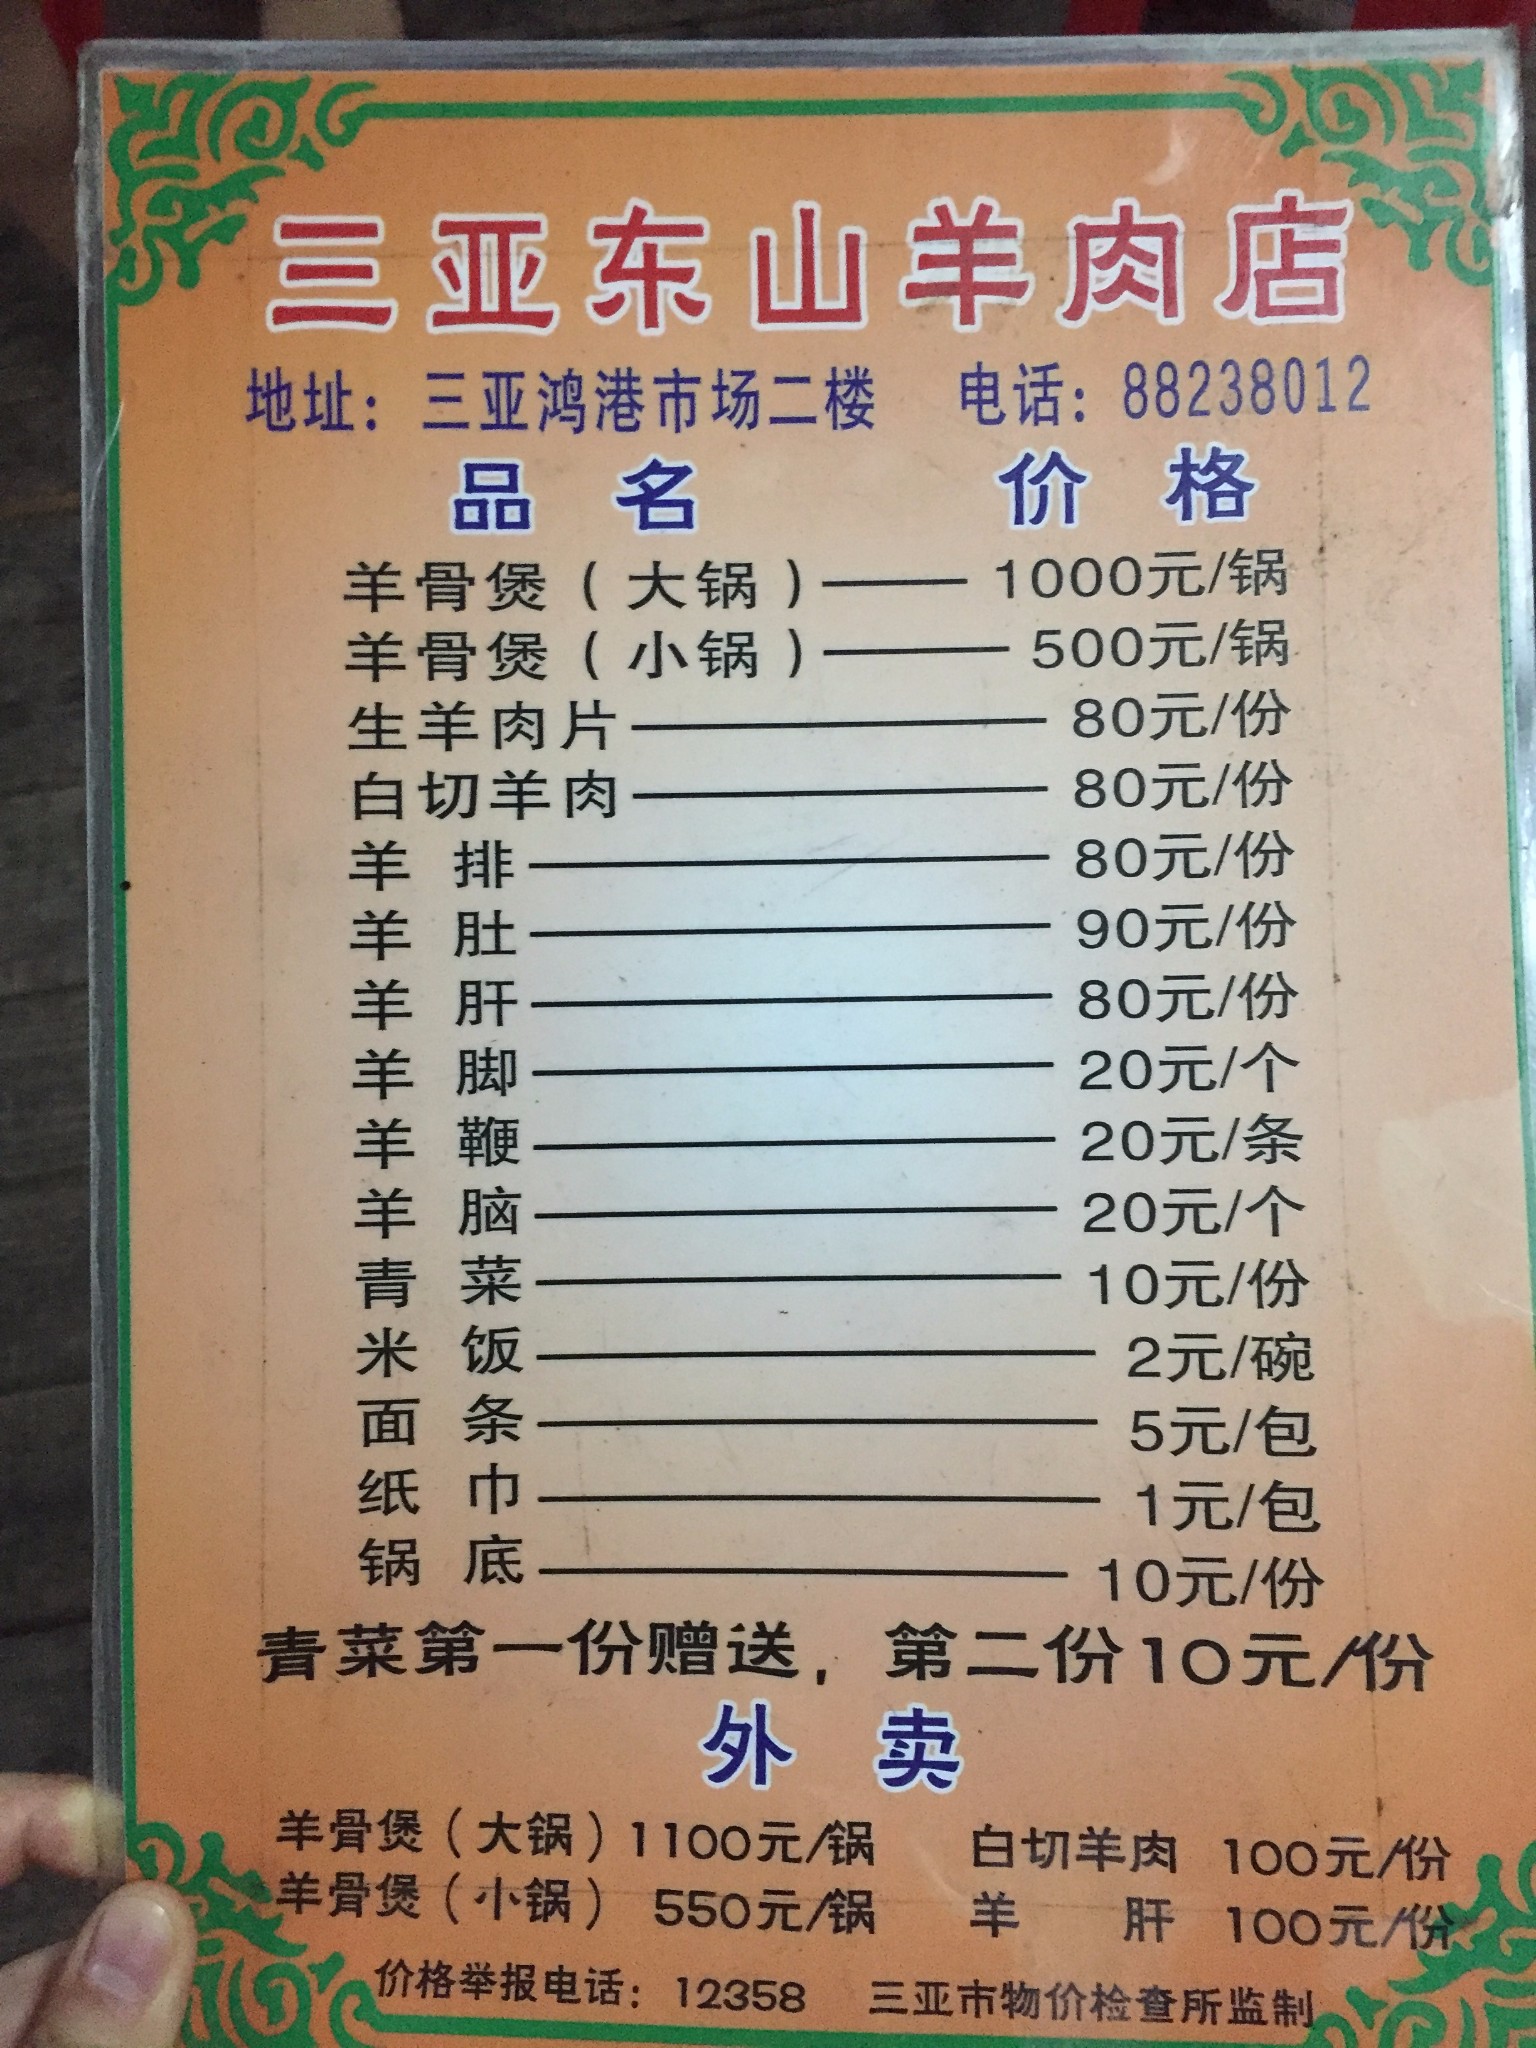 三亚东山羊肉店
地址：三亚鸿港市场二楼 电话：88238012
品名 价格
羊骨煲（大锅）—— 1000元/锅
羊骨煲（小锅）—— 500元/锅
生羊肉片—— 80元/份
白切羊肉—— 80元/份
羊排—— 80元/份
羊肚—— 90元/份
羊肝—— 80元/份
羊脚—— 20元/个
羊鞭—— 20元/条
羊脑—— 20元/个
青菜—— 10元/份
米饭—— 2元/碗
面条—— 5元/包
纸巾—— 1元/包
锅底—— 10元/份
青菜第一份赠送，第二份10元/份
外卖
羊骨煲（大锅）1100元/锅 白切羊肉 100元/份
羊骨煲（小锅） 550元/锅 羊肝 100元/份
价格举报电话：12358 三亚市物价检查所监制